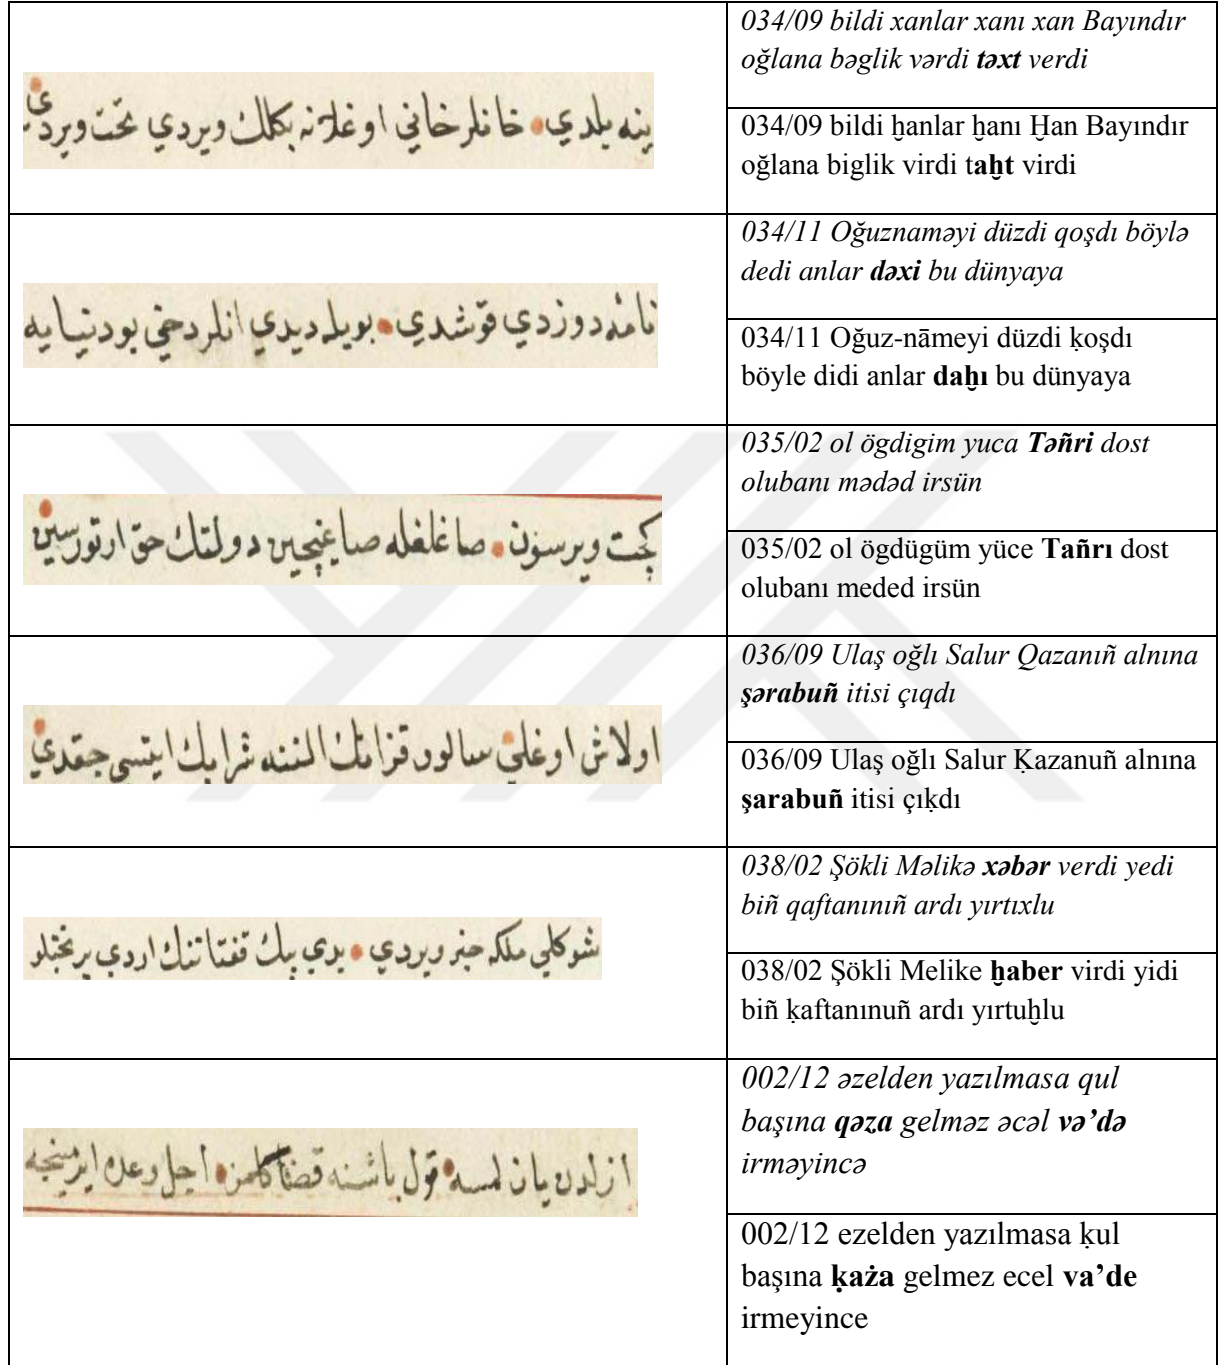 ينه بلدي • خانلر خاني اوغلانه بكلك ويردي تخت ويردي
034/09 bildi xanlar xanı xan Bayındır
oğlana bəglik vərdi təxt verdi
034/09 bildi ḫanlar ḫanı Ḫan Bayındır
oğlana biglik virdi taḫt virdi
نامه دوزدي قوشدي • بويله ديدي انلر دخي بو دنيايه
034/11 Oğuznaməyi düzdi qoşdı böylə
dedi anlar dəxi bu dünyaya
034/11 Oğuz-nāmeyi düzdi ḳoşdı
böyle didi anlar daḫı bu dünyaya
كچت ويرسون • صاغلغله صاغنچين دولتك حق ارتورسين
035/02 ol ögdigim yuca Təñri dost
olubanı mədəd irsün
035/02 ol ögdügüm yüce Tañrı dost
olubanı meded irsün
اولاش اوغلي سالور قزانك الننه شرابك ايتسي جقدي
036/09 Ulaş oğlı Salur Qazanıñ alnına
şərabuñ itisi çıqdı
036/09 Ulaş oğlı Salur Ḳazanuñ alnına
şarabuñ itisi çıḳdı
شوكلي ملكه خبر ويردي • يدي بيك قفتاننك اردي يرتخلو
038/02 Şökli Məlikə xəbər verdi yedi
biñ qaftanınıñ ardı yırtıxlu
038/02 Şökli Melike ḫaber virdi yidi
biñ ḳaftanınuñ ardı yırtuḫlu
ازلدن يازلمسه • قول باشنه قضا كلمز • اجل وعده ايرمينجه
002/12 əzelden yazılmasa qul
başına qəza gelməz əcəl və’də
irməyincə
002/12 ezelden yazılmasa ḳul
başına ḳaża gelmez ecel va’de
irmeyince